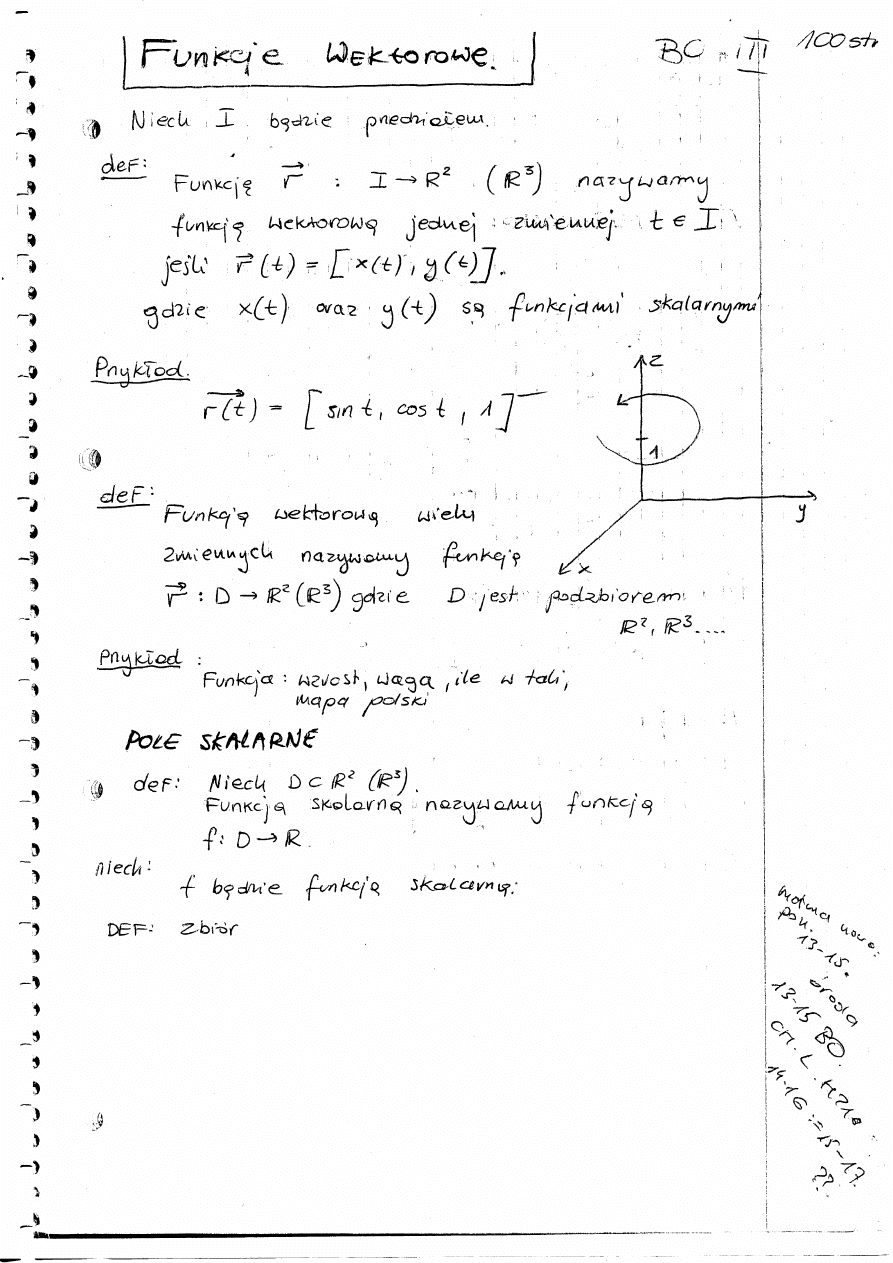 Funkcje Wektorowe.
BC III 100 str
Niech I będzie przedziałem.
def:
Funkcję r⃗ : I → R² (R³) nazywamy
funkcją wektorową jednej zmiennej t ∈ I
jeśli r⃗(t) = [x(t), y(t)].
gdzie x(t) oraz y(t) są funkcjami skalarnymi
Przykład.
r⃗(t) = [sin t, cos t, 1]
z
1
y
x
def:
Funkcją wektorową wielu
zmiennych nazywamy funkcję
r⃗ : D → R² (R³) gdzie D jest podzbiorem
R², R³....
Przykład :
Funkcja : wzrost, waga, ile w tali,
mapa polski
POLE SKALARNE
def: Niech D ⊂ R² (R³).
Funkcją skalarną nazywamy funkcją
f: D → R.
niech:
f będzie funkcją skalarną:
DEF: Zbiór
pon.
13-15.
środa
13-15 BO.
14-16 := 15-17.
??.